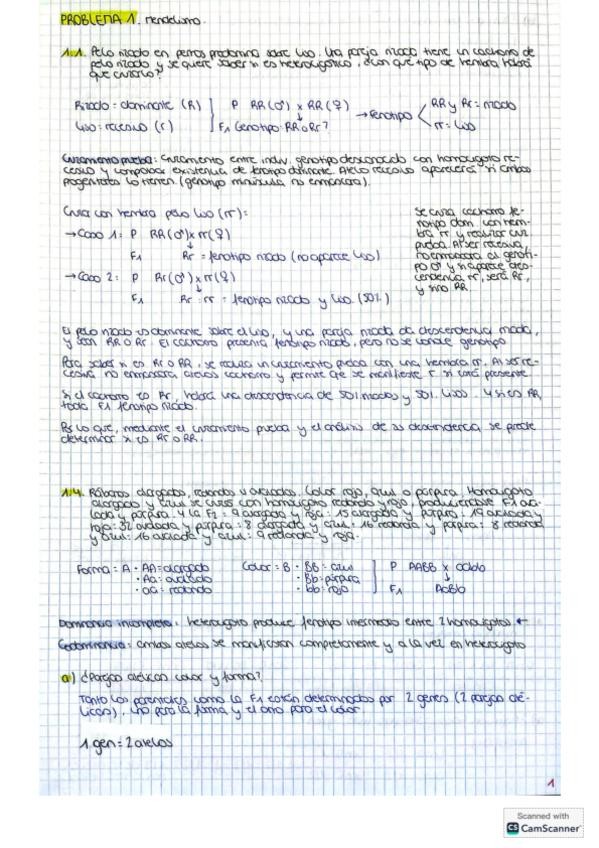 PROBLEMA 1. mendelismo.
1.1. Pelo rizado en perros predomina sobre liso. Una pareja rizado tiene un cachorro de
pelo rizado y se quiere saber si es heterocigótico. ¿Con qué tipo de hembra habrá
que cruzarlo?
Rizado: dominante (R)
Liso: recesivo (r)
P RR(♂) x RR(♀)
F1 ¿Genotipo: RR o Rr?
→ Fenotipo
RR y Rr = rizado
rr = liso
Cruzamiento prueba: cruzamiento entre indiv. genotipo desconocido con homocigoto re-
cesivo y comprobar existencia de fenotipo dominante. Alelo recesivo aparecerá si ambos
progenitores lo tienen (genotipo minúscula no enmascara).
Cruza con hembra pelo liso (rr):
→ Caso 1: P RR(♂) x rr(♀)
F1 Rr = fenotipo rizado (no aparece liso)
→ Caso 2: P Rr(♂) x rr(♀)
F1 Rr : rr = fenotipo rizado y liso (50%)
Se cruza cachorro fe-
notipo dom. con hem-
bra rr y realizar cruz
prueba. Al ser recesiva,
no enmascara el genoti-
po ♂ y si aparece des-
cendencia rr, será Rr,
y si no RR
El pelo rizado es dominante sobre el liso, y una pareja rizada da descendencia rizada,
y son RR o Rr. El cachorro presenta fenotipo rizado, pero no se conoce genotipo
Para saber si es Rr o RR, se realiza un cruzamiento prueba con una hembra rr. Al ser re-
cesiva no enmascara alelos cachorro y permite que se manifieste r si está presente.
Si el cachorro es Rr, habrá una descendencia de 50% rizados y 50% lisos. Y si es RR,
toda F1 fenotipo rizado.
Por lo que, mediante el cruzamiento prueba y el análisis de su descendencia se puede
determinar si es Rr o RR.
1.4. Rábanos alargados, redondos u ovalados. Color rojo, azul o púrpura. Homocigoto
alargado y azul se cruza con homocigoto redondo y rojo, produciéndose F1 ova-
lada y púrpura. Y la F2: 9 alargada y roja : 15 alargada y púrpura : 19 ovalada y
roja : 32 ovalada y púrpura : 8 alargada y azul : 16 redonda y púrpura : 8 redonda
y azul : 16 ovalada y azul : 9 redonda y roja.
Forma: A · AA = alargado
· Aa = ovalado
· aa = redondo
Color = B · BB = azul
· Bb = púrpura
· bb = rojo
P AABB x aabb
F1 AaBb
Dominancia incompleta: heterocigoto produce fenotipo intermedio entre 2 homocigotos ←
Codominancia: ambos alelos se manifiestan completamente y a la vez en heterocigoto
a) ¿Parejas alélicas color y forma?
Tanto los parentales como la F1 están determinados por 2 genes (2 parejas alé-
licas), uno para la forma y el otro para el color
1 gen = 2 alelos
1
Scanned with
CS CamScanner